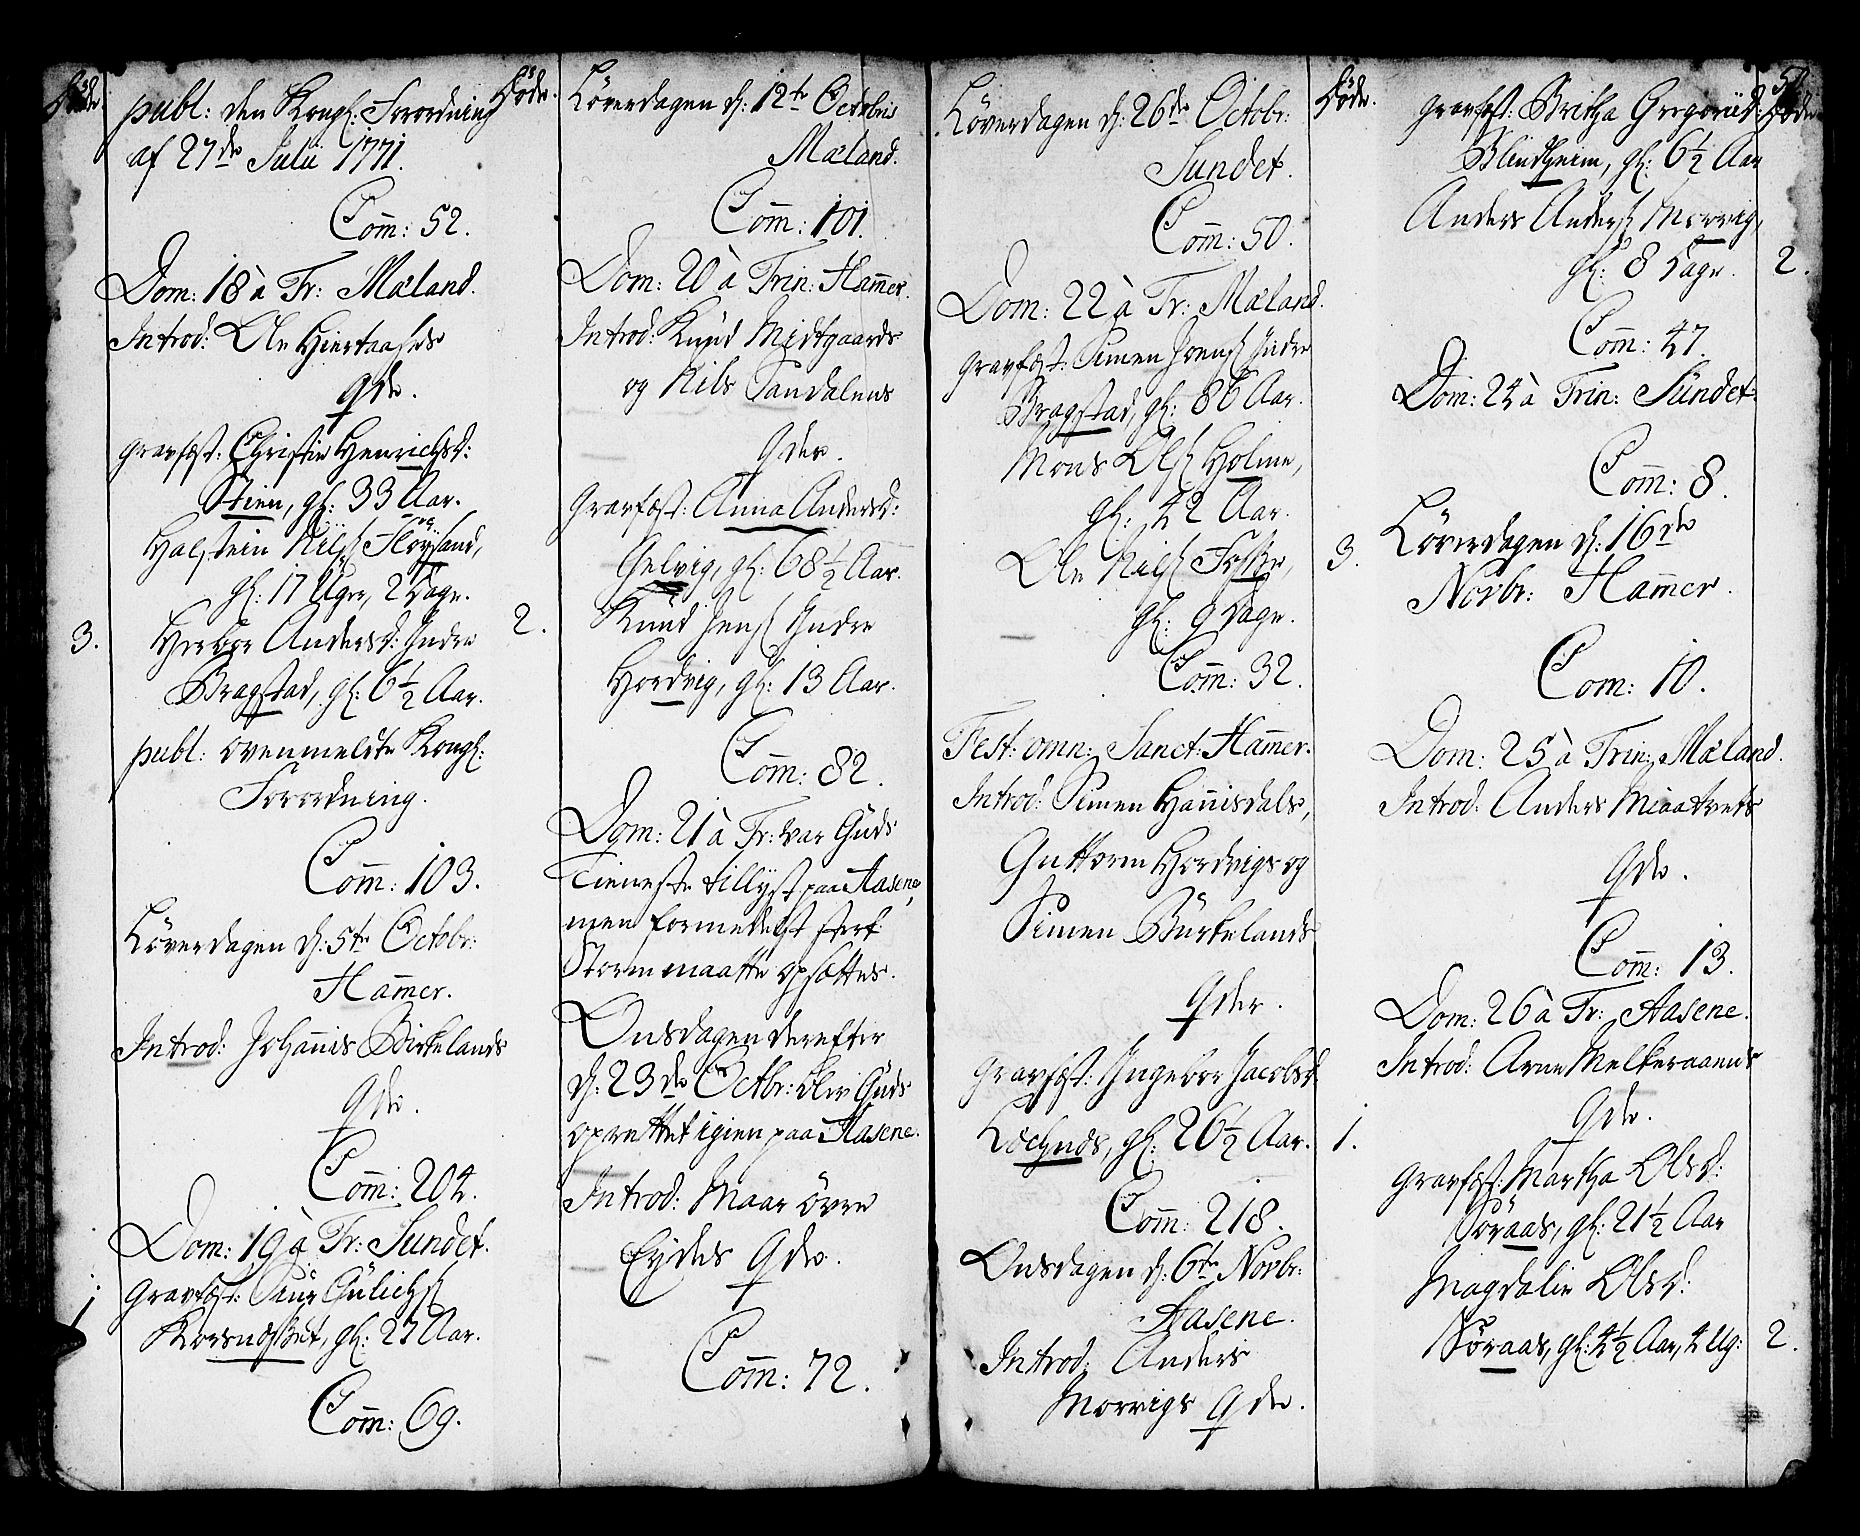 Døde.
publ: den Kongl: Forordning
af 27de Julii 1771.
Com̄: 52.
Dom: 18 à Tr: Mæland.
Introd: Ole Hiertaases
Qde.
Gravfæst: Christie Henrichsd:
Stien, gl: 33 Aar.
Halstein Nilss. Fløysand,
gl: 17 Uger, 2 Dage.
Herbor Andersd: Indre
3.
Bragstad, gl: 6½ Aar.
publ: ovenmeldte Kongl:
Forordning.
Com̄: 103.
Løverdagen d: 5te Octobr:
Ham̄er.
Introd: Johan̄is Birkelands
Qde.
Com̄: 204.
Dom: 19 à Tr: Sundet.
Gravfæst: Siur Gulichs.
Korsnæsset, gl: 27 Aar.
1
Com̄: 69.
Døde.
Løverdagen d: 12te Octobris
Mæland.
Com̄: 101.
Dom: 20 à Trin: Ham̄er.
Introd: Knud Midtgaards
og Nils Sandalens
Qder.
Gravfæst: Anna Andersd:
Gelvig, gl: 68½ Aar.
Knud Jens. Indre
2.
Hordvig, gl: 13 Aar.
Com̄: 82.
Dom: 21 à Tr: var Guds
Tieneste tillyst paa Aasene,
men formedelst sterk
Storm maatte opsættes.
Onsdagen derefter
d: 23de Octbr: blev Guds
oprettet igien paa Aasene.
Introd: Maar øvre
Eydes Qde.
Com̄: 72.
Løverdagen d: 26de Octobr:
Sundet.
Com̄: 50.
Dom: 22 à Tr: Mæland.
Gravfæst: Simen Ivers. Indre
Bragstad, gl: 86 Aar.
Mons Ols. Holme,
gl: 42 Aar.
Ole Nils. Fosse,
3.
gl: 9 Dage.
Com̄: 32.
Fest: omn: Sanct: Ham̄er.
Introd: Simen Han̄isdals,
Guttorm Hordvigs og
Simen Burkelands
Qder.
Gravfæst: Ingebor Jacobsd.
gl: 26½ Aar.
1.
Com̄: 218.
Onsdagen d: 6te Novbr:
Aasene.
Introd: Anders
Morvigs Qde.
Døde.
51
Gravfæst: Britha Gregoriid:
Døde
Blindheim, gl: 6½ Aar
Anders Anders. Morvig,
gl: 8 Dage.
2.
Com̄: 47.
Dom: 24 à Trin: Sundet.
Com̄: 8.
Løverdagen d: 16de
Novbr: Ham̄er.
Com̄: 10.
Dom: 25 à Trin: Mæland.
Introd: Anders Miaatvets
Qde.
Com̄: 13.
Dom: 26 à Tr: Aasene.
Introd: Arne Melkeraaens
Qde.
Gravfæst: Martha Olsd:
Søraas, gl: 21½ Aar
Magdalie Olsd:
Søraas, gl: 4½ Aar, 4 Ug:
2.